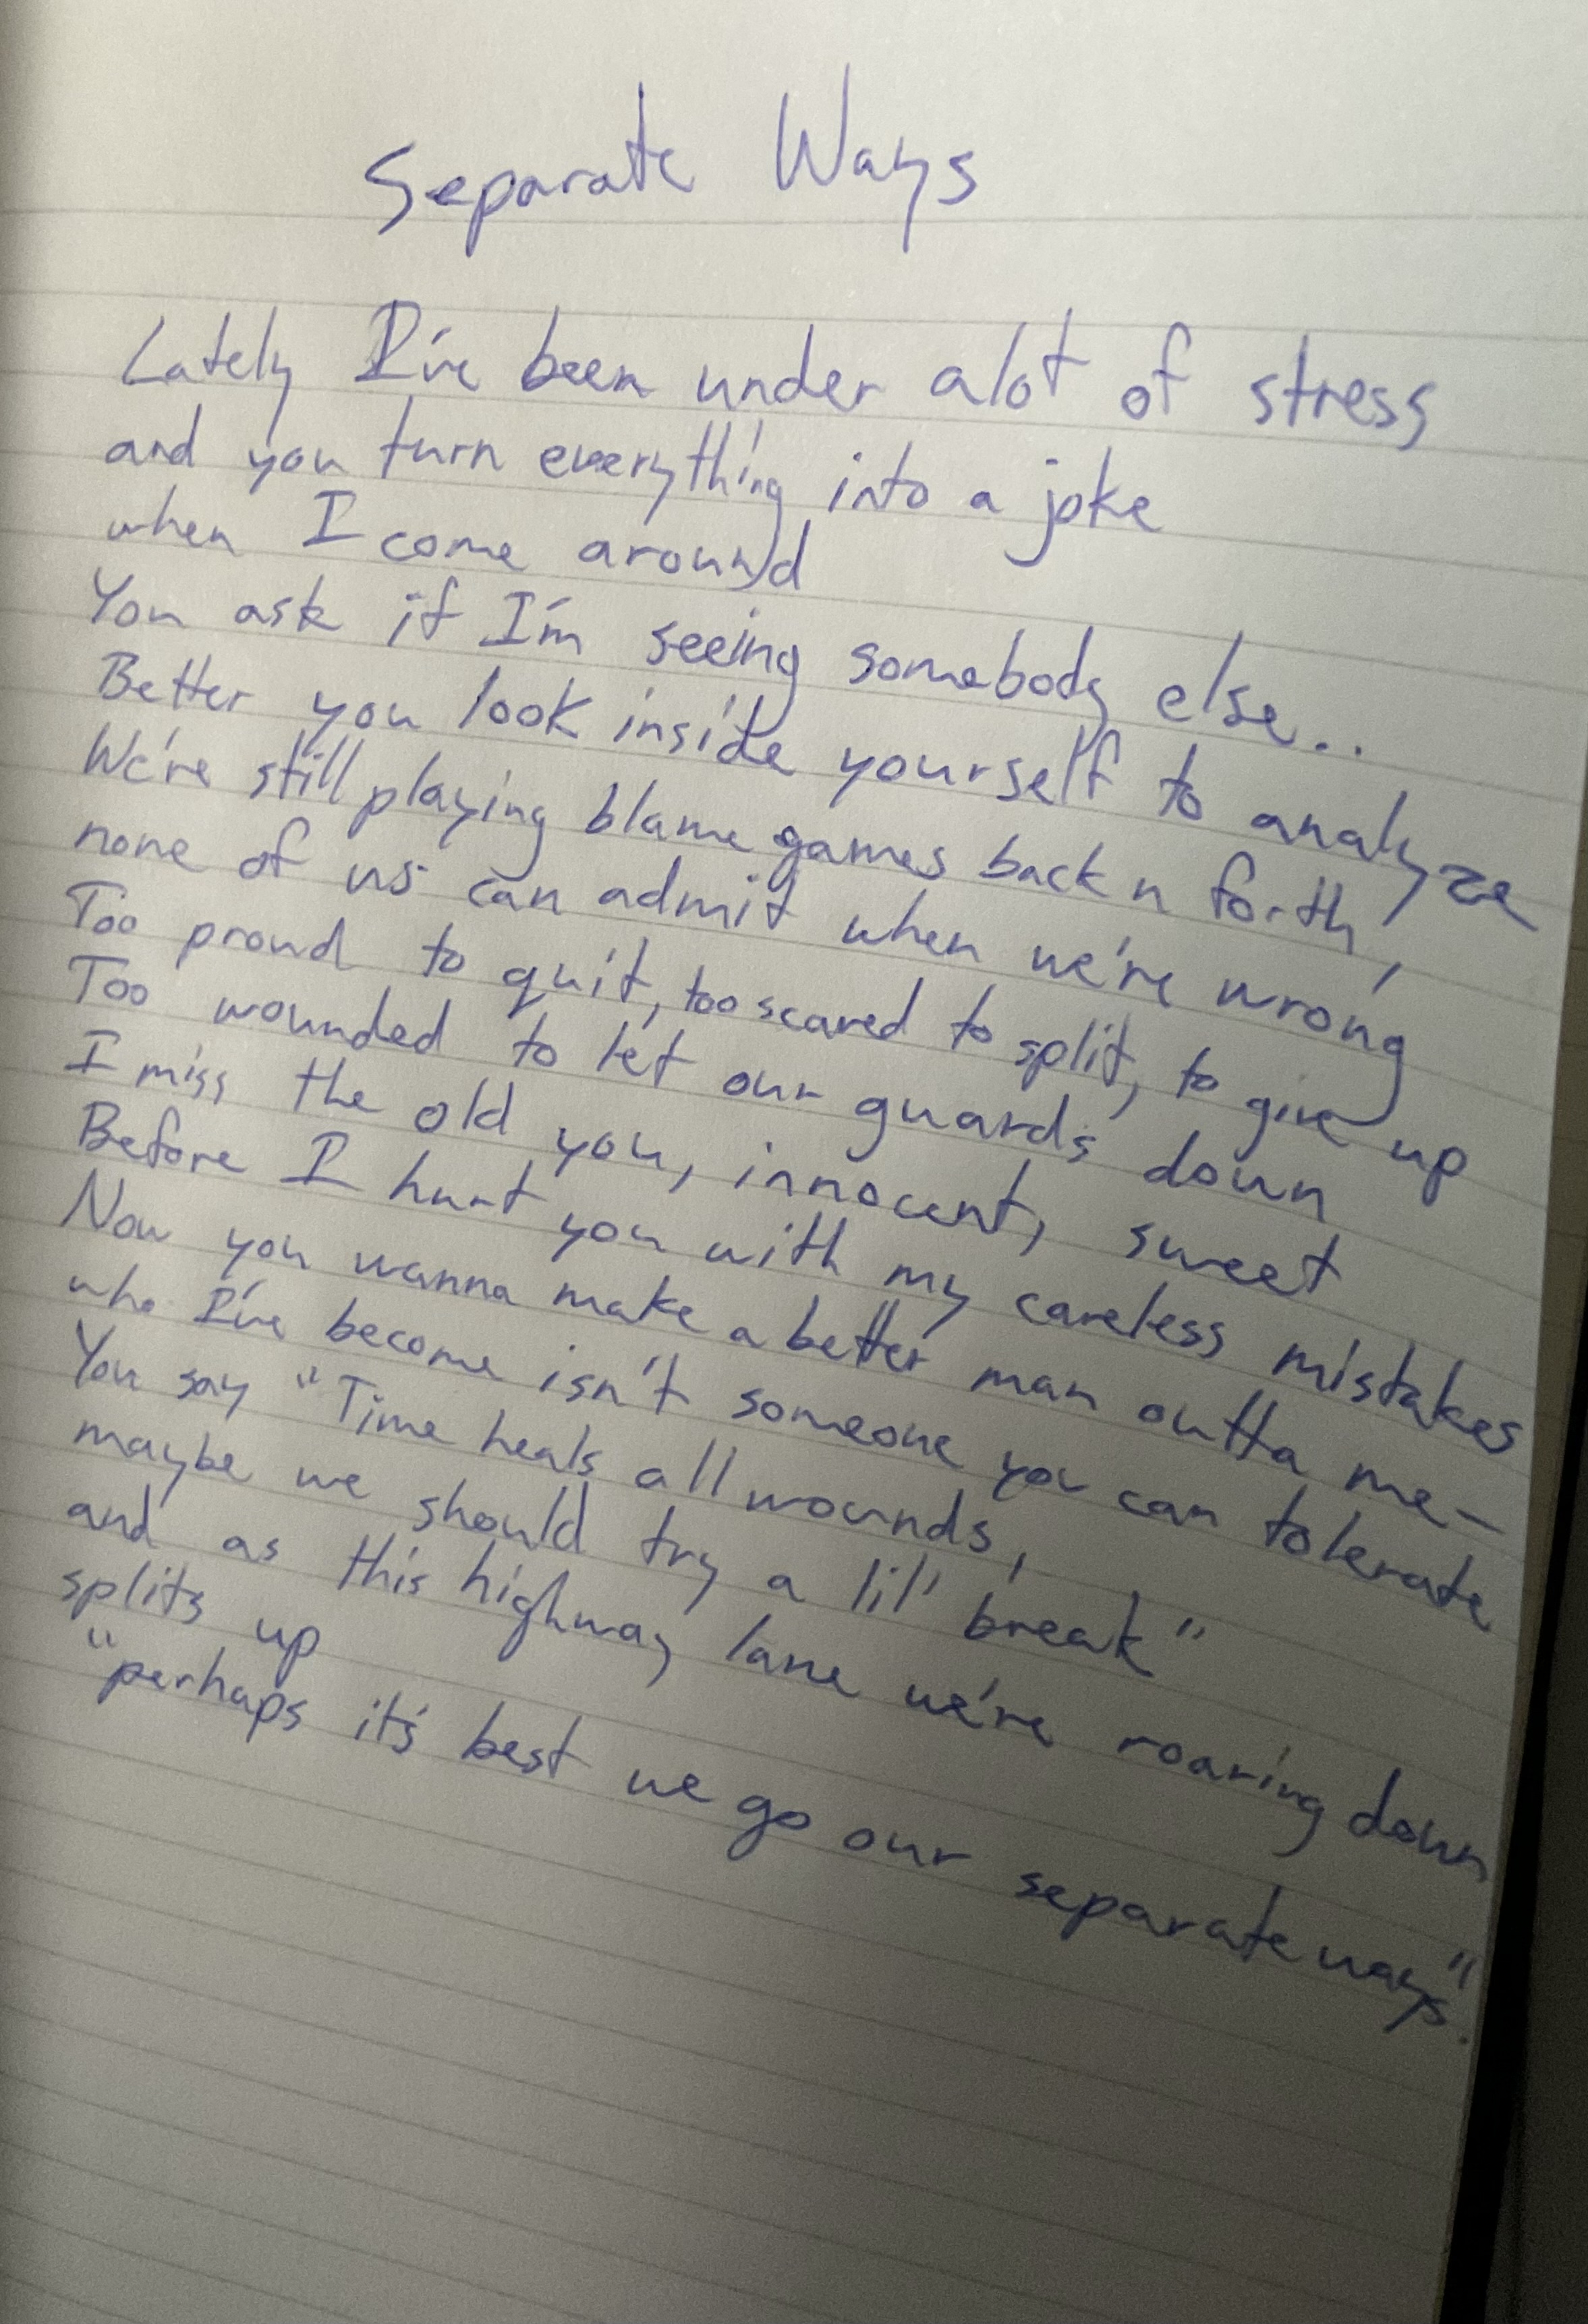 Separate Ways
Lately I've been under alot of stress
and you turn everything into a joke
when I come around
You ask if I'm seeing somebody else..
Better you look inside yourself to analyze
We're still playing blame games back n forth,
none of us can admit when we're wrong
Too proud to quit, too scared to split, to give up
Too wounded to let our guards down
I miss the old you, innocent, sweet
Before I hurt you with my careless mistakes
Now you wanna make a better man outta me-
who I've become isn't someone you can tolerate
You say "Time heals all wounds,
maybe we should try a lil' break"
and as this highway lane we're roaring down
splits up
"perhaps it's best we go our separate ways".